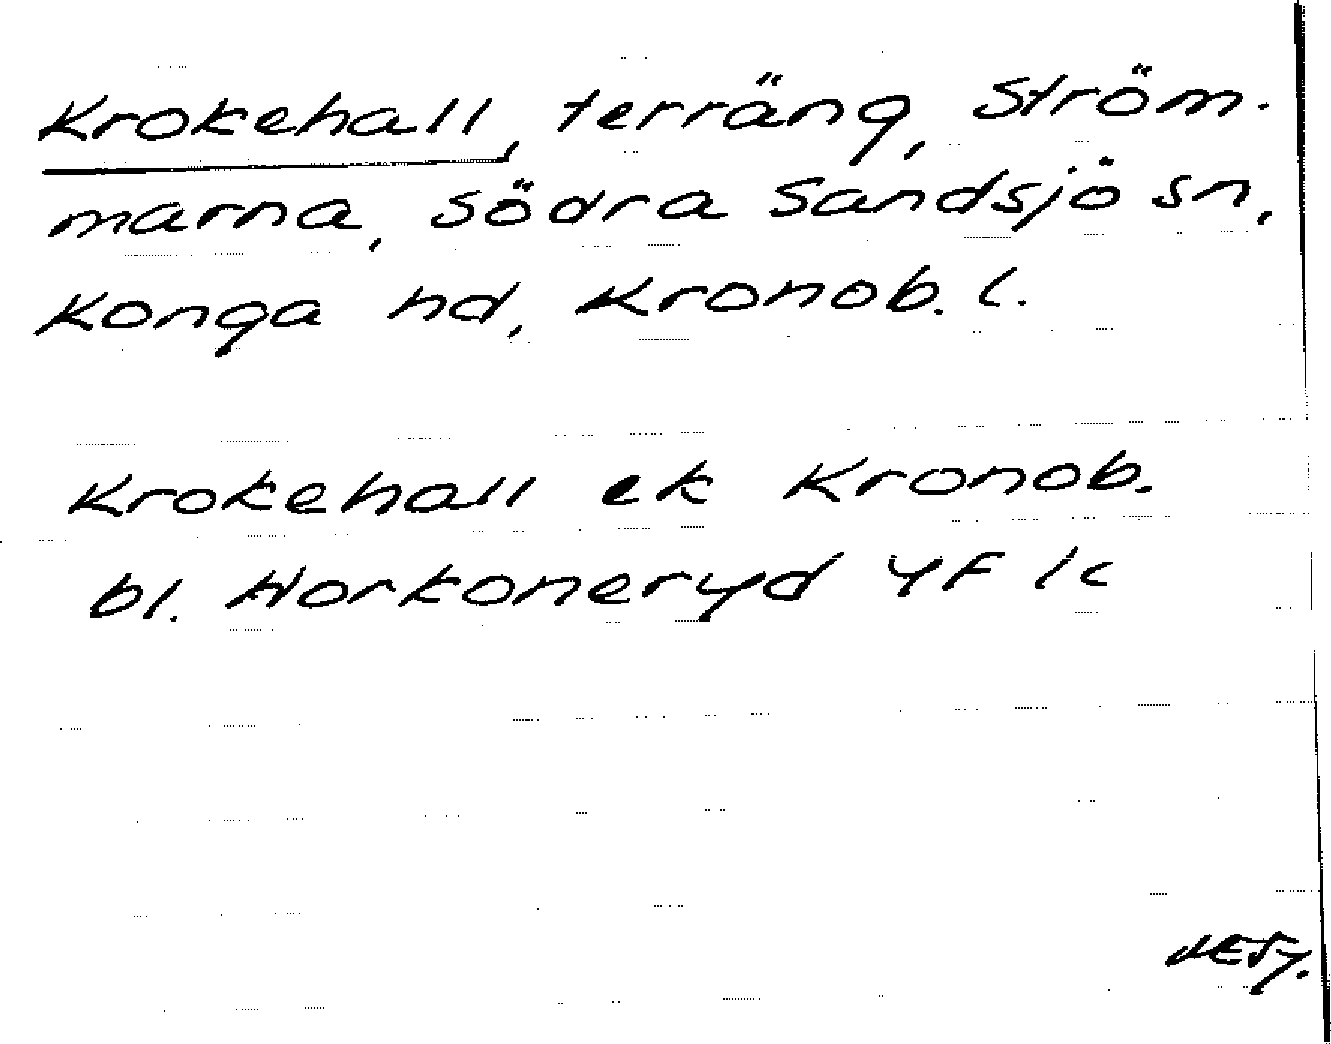 Krokehall, terräng, Ström-
marna, Södra Sandsjö sn,
Konga hd, Kronob. l.
Krokehall ek Kronob.
bl. Horkoneryd 4F 1c